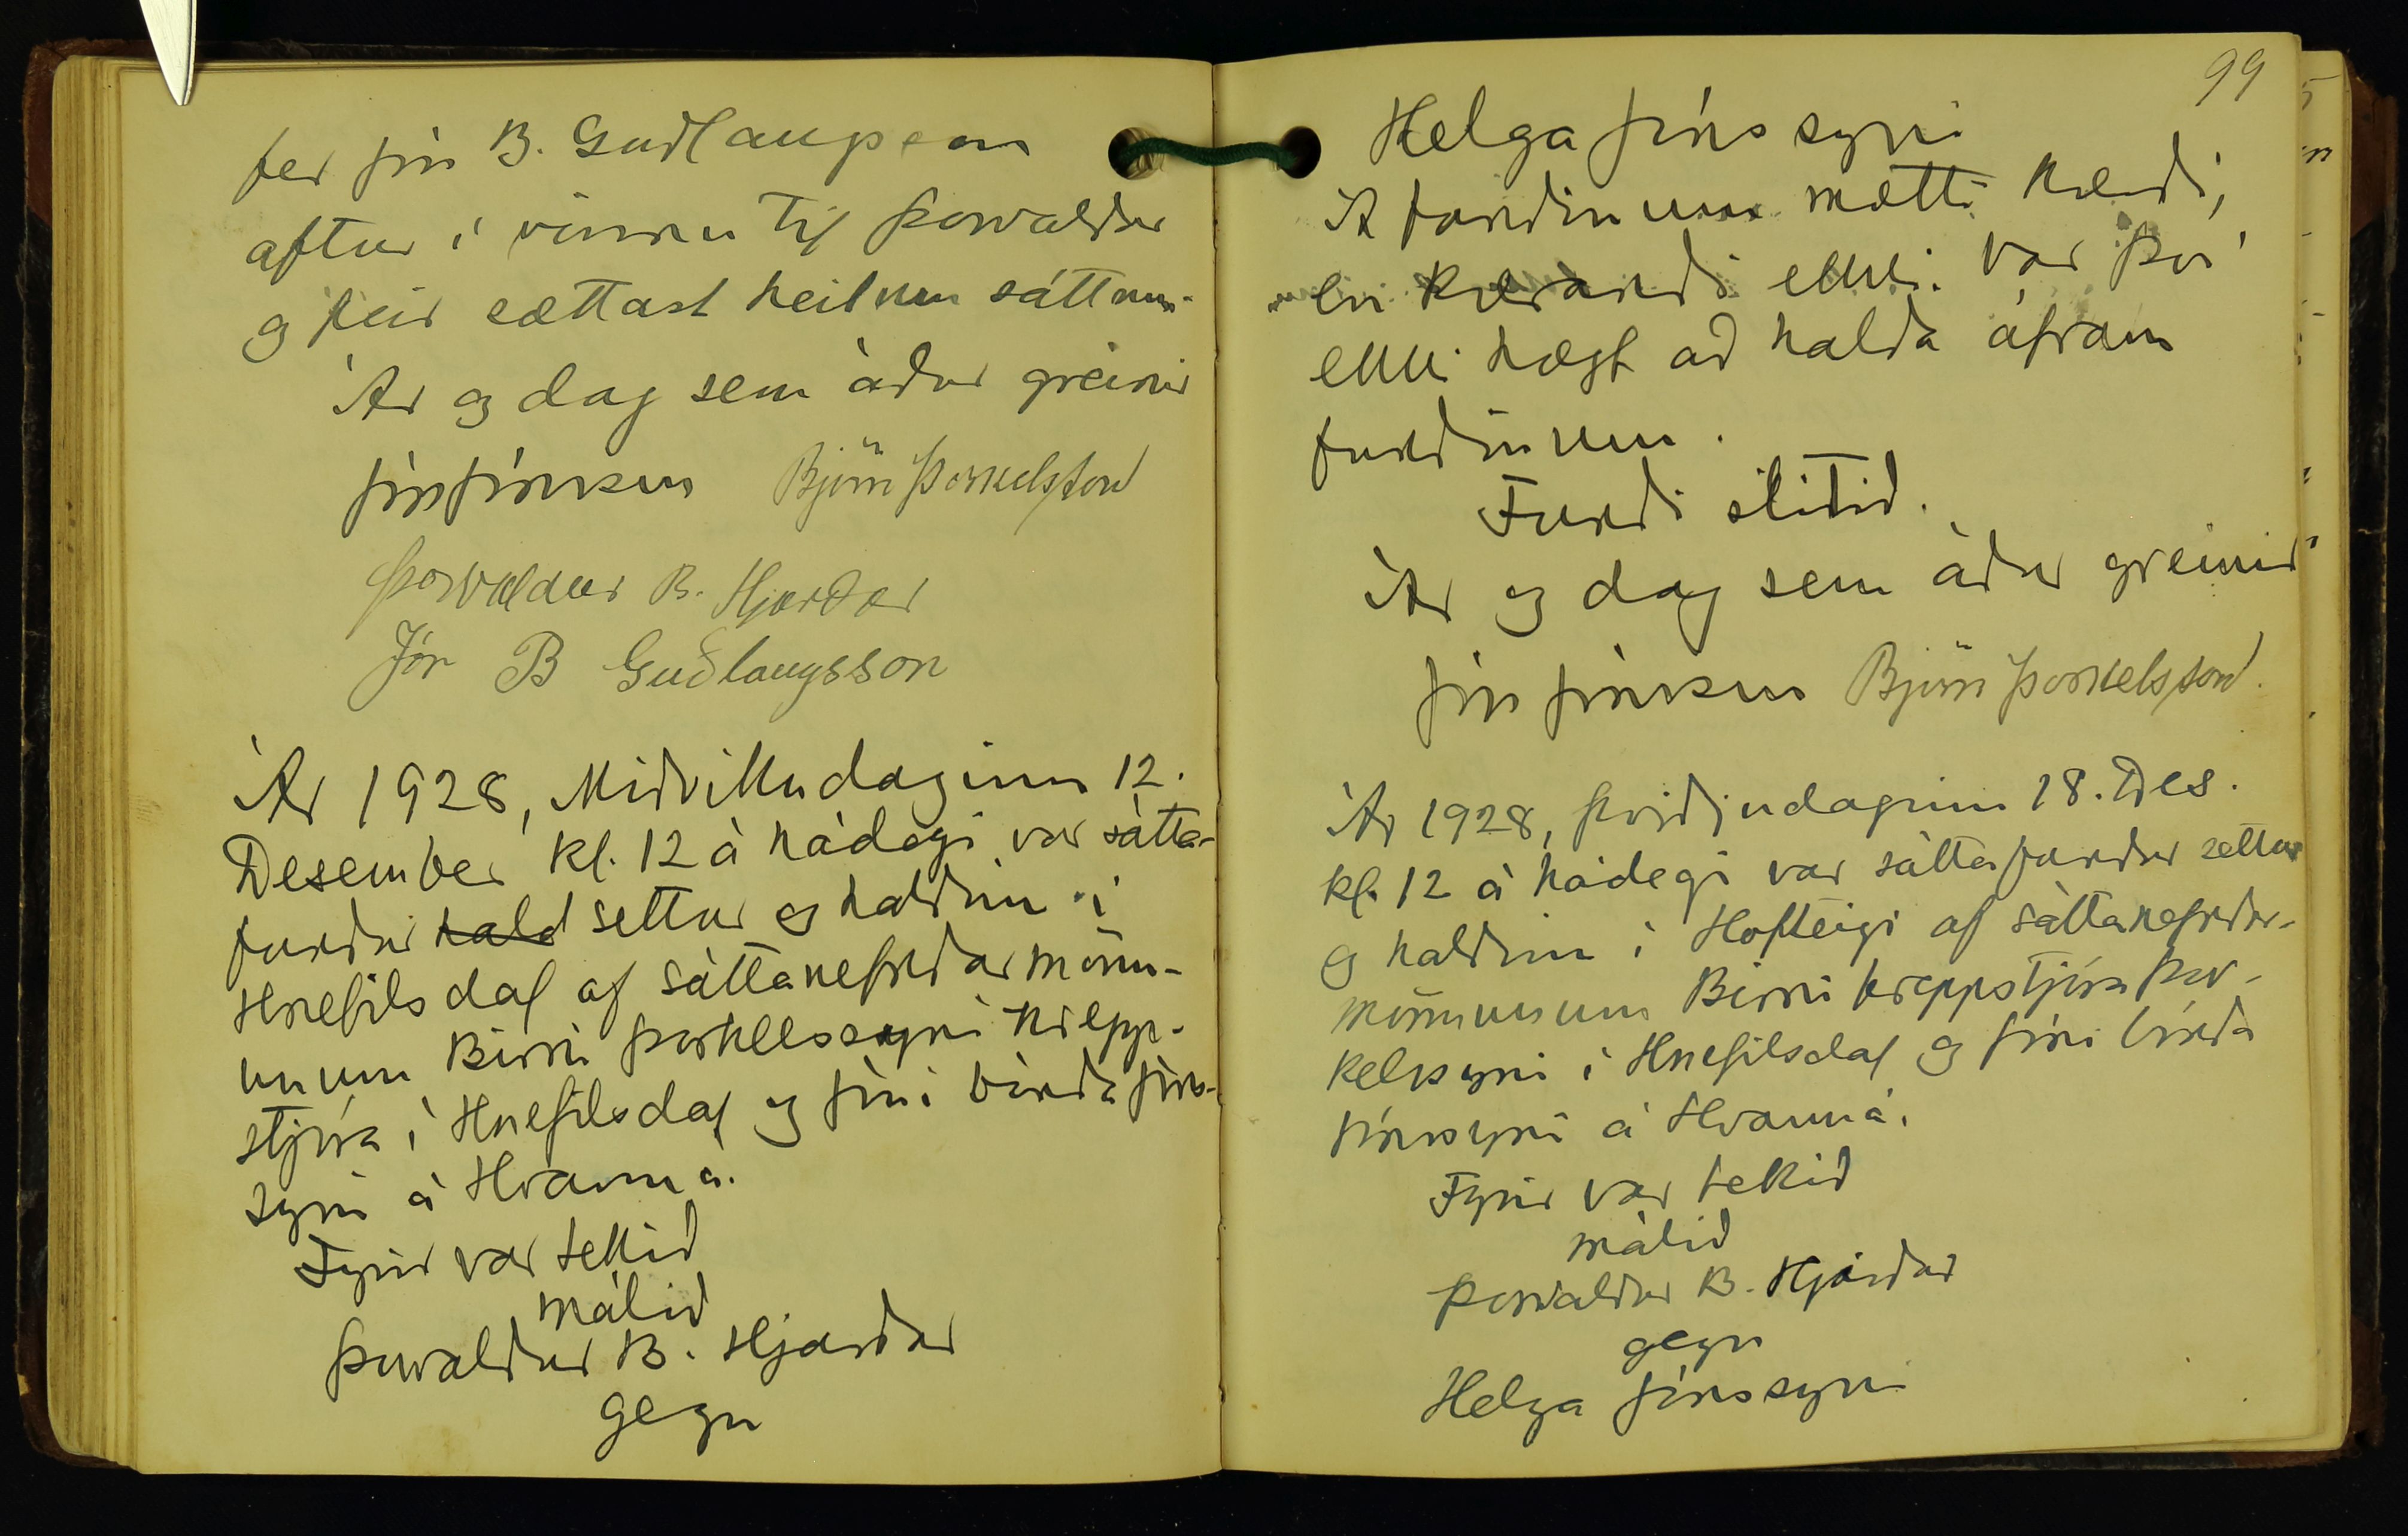 fer Jón B. Guðlaugsson
aftur í vinnu til Þorvaldar
og þeir sættast heilum sáttum.
Ár og dag sem áður greinir
Jón Jónsson Björn Þorkelsson
Þorvaldur B. Hjarðar
Jón B Guðlaugsson
Ár 1928, Miðvikudaginn 12.
Desember kl. 12 á hádegi var sátta-
fundur hald settur og haldinn í
Hnefilsdal af sáttanefndarmönn-
unum Birni Þorkelssyni hrepp-
stjóra í Hnefilsdal og Jóni bónda Jóns-
syni á Hvanná.
Fyrir var tekið
málið
Þorvaldur B. Hjarðar
gegn
99
Helga Jónssyni
Á fundinum mætti kærði,
en kærandi ekki. Var því
ekki hægt að halda áfram
fundinum.
Fundi slitið.
Ár og dag sem áður greinir
Jón Jónsson Björn Þorkelsson
Ár 1928, þriðjudaginn 18. Des.
kl. 12 á hádegi var sáttafundur settur
og haldinn í Hofteigi af sáttanefndar-
mönnunum Birni hreppstjóra Þor-
kelssyni í Hnefilsdal og Jóni bónda
Jónssyni á Hvanná.
Fyrir var tekið
málið
Þorvaldur B. Hjarðar
gegn
Helga Jónssyni